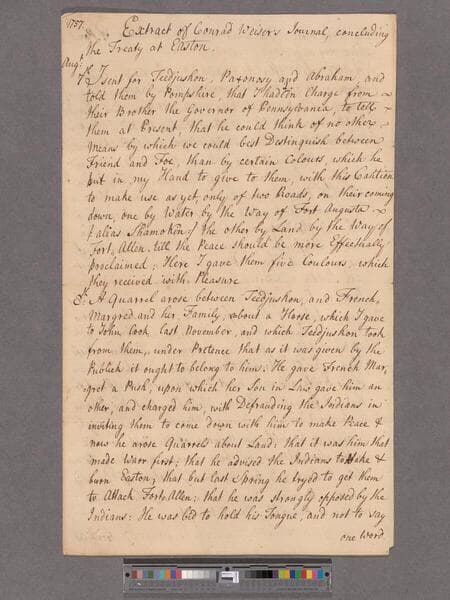 1757.
Extract of Conrad Weiser's Journal, concluding
the Treaty at Easton.
Augt
7th I sent for Teedjushon, Paxonosy and Abraham, and
told them by Pompshire, that I had in Charge from
their Brother the Governor of Pennsylvania, to tell
them at Present, that he could think of no other
Means by which we could best Destinguish between
Friend and Foe, than by certain Colours, which he
put in my Hand to give to them, with this Caution
to make use as yet, only of two Roads, on their coming
down, one by Water by the Way of Fort Augusta
(alias Shamokin) the other by Land by the Way of
Fort Allen. till the Peace should be more Effectually
proclaimed; Here I gave them five Coulours, which
they received with Pleasure
8th A Quarrel arose between Teedjushon, and French
Margred and her Family, about a Horse, which I gave
to John Cook last November, and which Teedjushon took
from them, under Pretence that as it was given by the
Publick it ought to belong to him: He gave French Mar,
gret a Push, upon which her Son in Law gave him an
other, and charged him, with Defrauding the Indians in
inviting them to come down with him to make Peace &
now he arose Quarrels about Land: that it was him that
made Warr first; that he advised the Indians to take &
burn Easton; that but last Spring he try'd to get them
to Attack Fort Allen; that he was strongly opposed by the
Indians: He was bid to hold his Tongue, and not to say
one word